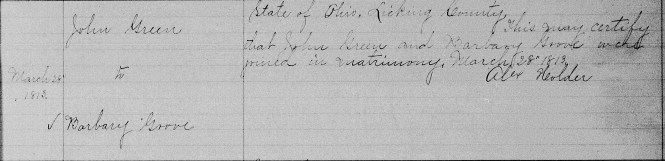 John Green
State of Ohio, Licking County,
This may certify
that John Green and Barbary Grove were
joined in matrimony, March 28th 1813
Alex Holder
March 28
1813
to
Barbary Grove